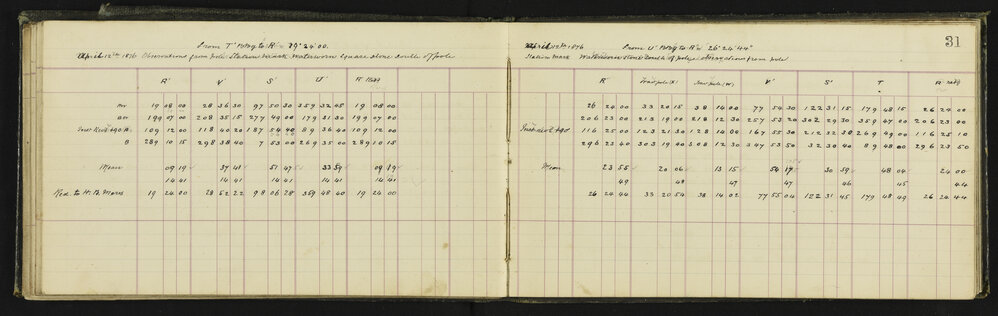 From T' Bdg to R' = 19° 24' 00"
April 12th 1876 Observations from pole Station Mark Waterworn Square stone South of pole
R' V' S' U' R'
19 08 00 28 36 30 97 50 30 357 32 45 19 08 00
199 07 00 208 35 15 277 49 00 179 31 30 199 07 00
109 12 00 118 40 20 187 54 40 89 36 40 109 12 00
B 289 10 15 298 38 40 7 53 00 269 35 00 289 10 15
Mean 09 19 37 41 51 47 33 59 09 19
14 41 14 41 14 41 14 41 14 41
Red. to H.B. Mans 19 24 00 28 52 22 98 06 28 359 48 40 19 24 00
31
April 12th 1876 From U' Bdg to R' = 26° 24' 44"
Station Mark Waterworn Stone South of pole observations from pole
R' V' S' T' R'
26 24 00 33 20 15 38 14 00 77 54 30 122 31 15 179 48 15 26 24 00
206 23 00 213 19 00 218 12 30 257 53 20 302 29 30 359 47 00 206 23 00
116 25 00 123 21 30 128 14 09 167 55 30 212 32 30 269 49 00 116 25 10
296 23 40 303 19 40 308 12 30 347 53 50 32 30 40 89 48 00 296 23 50
Mean 23 55 20 06 13 15 54 17 30 59 48 04 24 00
49 48 47 47 46 45 44
26 24 44 33 20 54 38 14 02 77 55 04 122 31 45 179 48 49 26 24 44